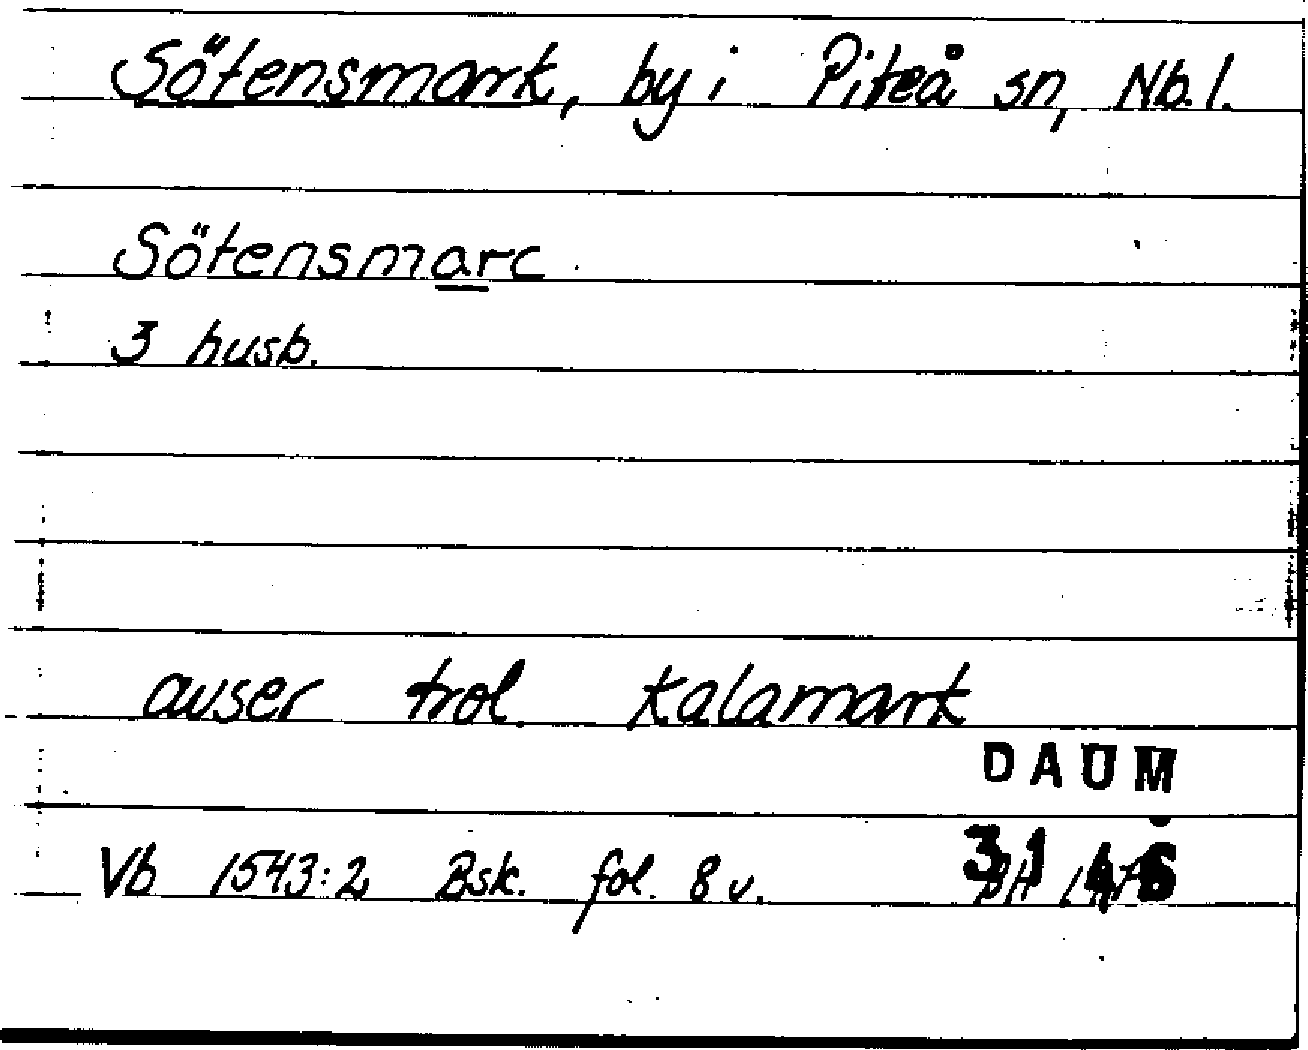 Sötensmark, by i Piteå sn, Nb. l.
Sötensmarc
3 husb.
avser trol. Kalamark
DAUM
Vb 1543:2 Bsk. fol. 8 v. 3146